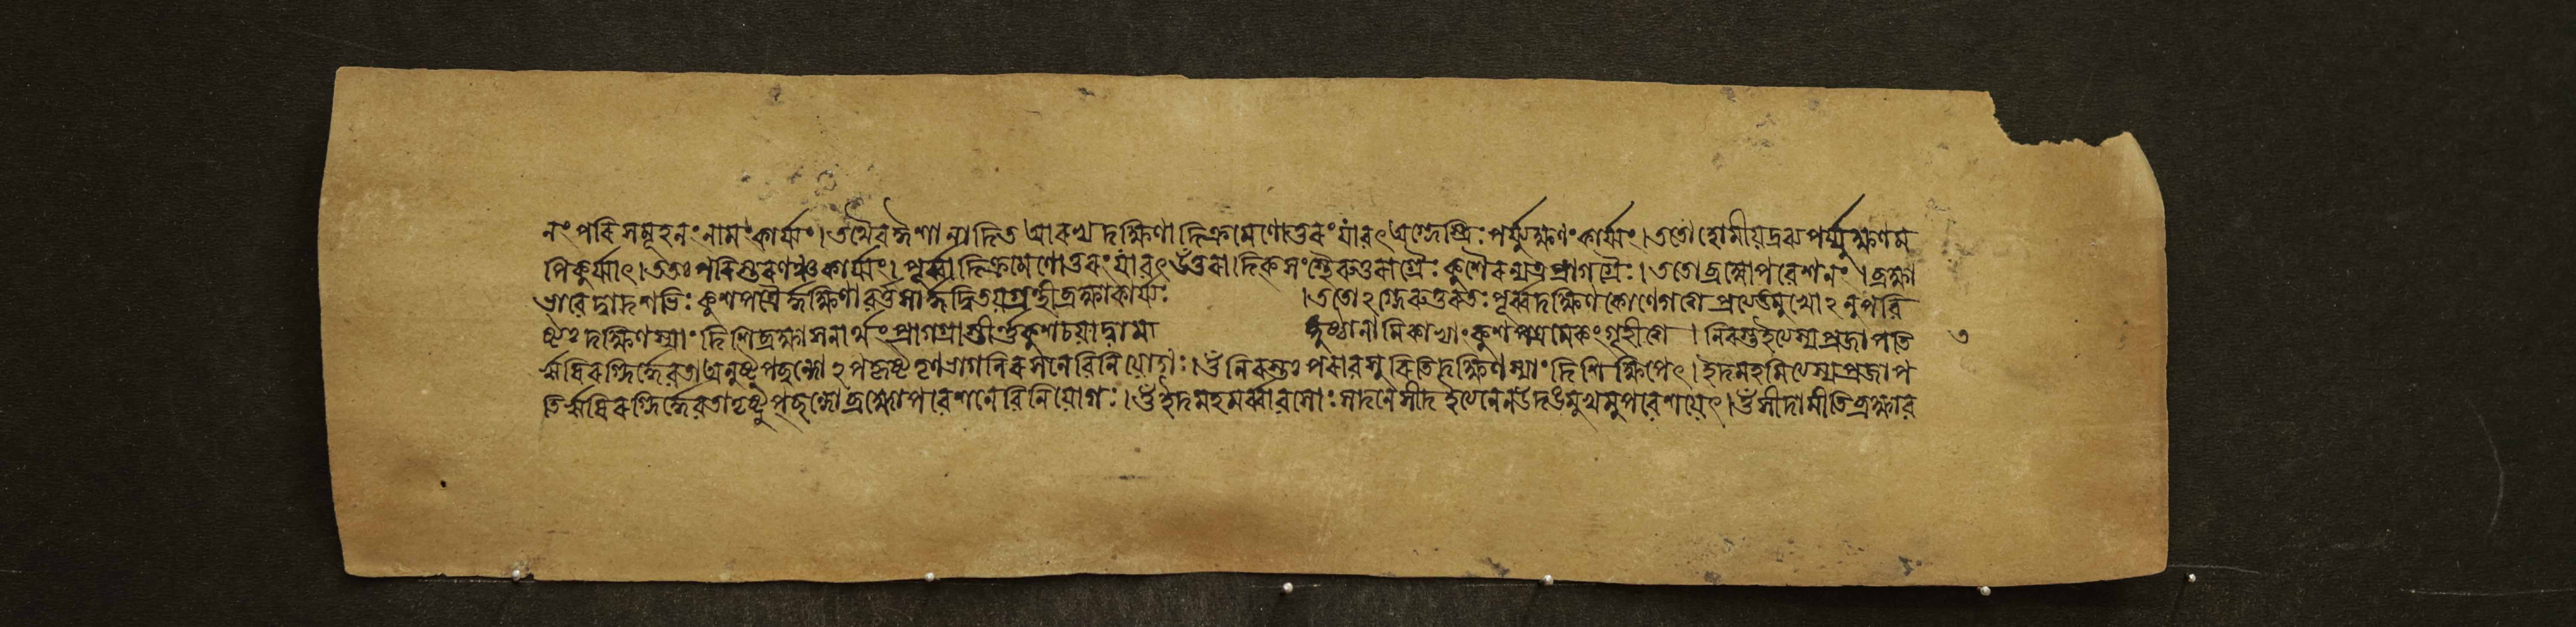 নংপরিসমূহনংনামংকার্য্যং। তথৈবহ্যৈশান্যাদিত আরভ্যদক্ষিণাদিক্রমেণোত্তরংযাবৎঅগ্নেস্ত্রিঃপর্য্যুক্ষণংকার্য্যং। ততোহোমীয়দ্রব্যপর্য্যুক্ষণম
পিকুর্য্যাৎ। ততঃপরিস্তরণঞ্চকার্য্যং। পূর্ব্বাদিক্রমেণোত্তরংযাবৎউত্তরাদিকসংস্থৈরুত্তরাগ্রৈঃকুশৈরন্যত্রপ্রাগগ্রৈঃ। ততোব্রহ্মোপবেশনং। ব্রহ্মা
ভাবেদ্বাদশভিঃকুশপত্রৈর্দ্দক্ষিণাবর্ত্তসার্দ্ধদ্বিতয়গ্রন্থীব্রহ্মাকার্য্যঃ। ততোঽগ্নেরুত্তরতঃপূর্ব্বদক্ষিণকোণেগত্বাপ্রত্যঙ্মুখোঽনুপবি
ষ্টঃদক্ষিণস্যাংদিশিব্রহ্মাসনার্থংপ্রাগগ্রাস্তীর্ণকুশচয়াদ্বামাঙ্গুষ্ঠানামিকাভ্যাংকুশপত্রমেকংগৃহীত্বা। নিরস্তইত্যস্যপ্রজাপতি ৩
ঋষিরগ্নির্দ্দেবতাঅনুষ্টুপ্ছন্দো তৃণভাগনিরসনেবিনিয়োগঃ। ওঁ নিরস্তঃপরাবসুরিতিদক্ষিণস্যাংদিশিক্ষিপেৎ। ইদমহমিত্যস্যপ্রজাপ
তির্ঋষিরগ্নির্দ্দেবতাতৃষ্টুপ্ছন্দোব্রহ্মোপবেশনেবিনিয়োগঃ। ওঁ ইদমহমর্ব্বাবসোঃসদনেসীদইত্যনেনউদঙ্মুখমুপবেশয়েৎ। ওঁ সীদামীতিব্রহ্মাব